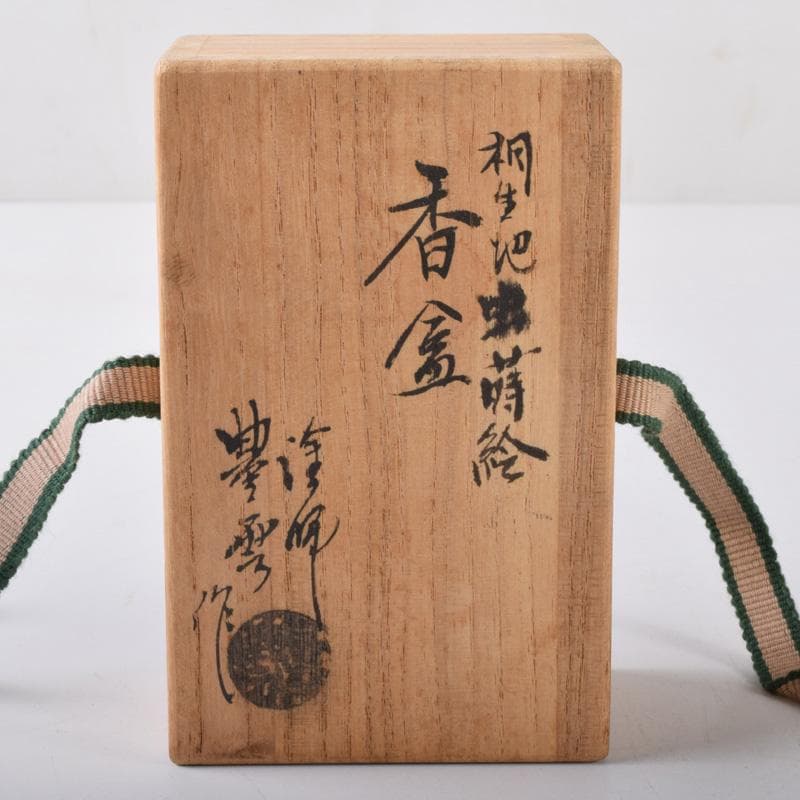 桐生地虫蒔絵
香盒
塗師
豊雲作